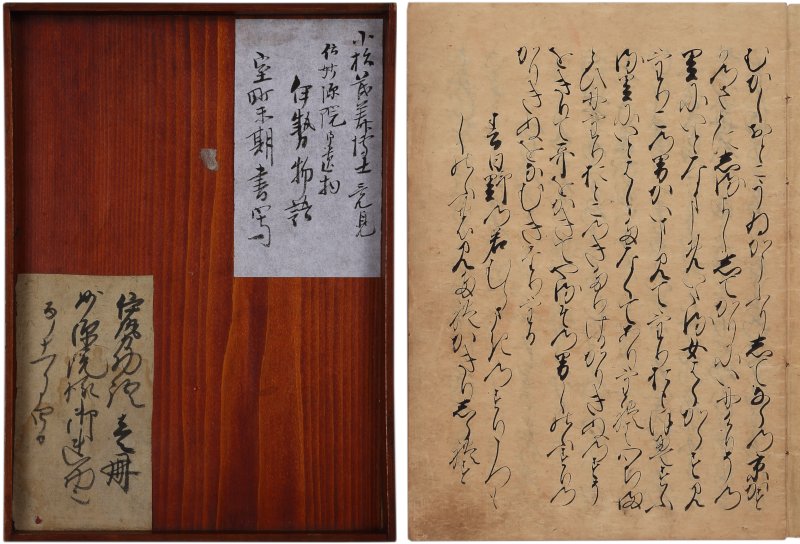 小松茂美博士意見
伝妙源院
伊勢物語
室町末期書写
伊勢物語 壱冊
妙源院様御
むかしおとこうゐかうふりしてならの京かす
かのさとにしるよしゝてかりにいにけりその
里にいとなまめいたる女はらからすみ
けりこの男かいま見てけりおもほえすふ
る里にいとはしたなくてありけれは心ちま
とひにけりおとこのきたりけるかりきぬのすそ
をきりて哥をかきてやるその男しのふすりの
かりきぬをなむきたりける
春日野の若むらさきのすりころも
しのふのみたれかきりしられす